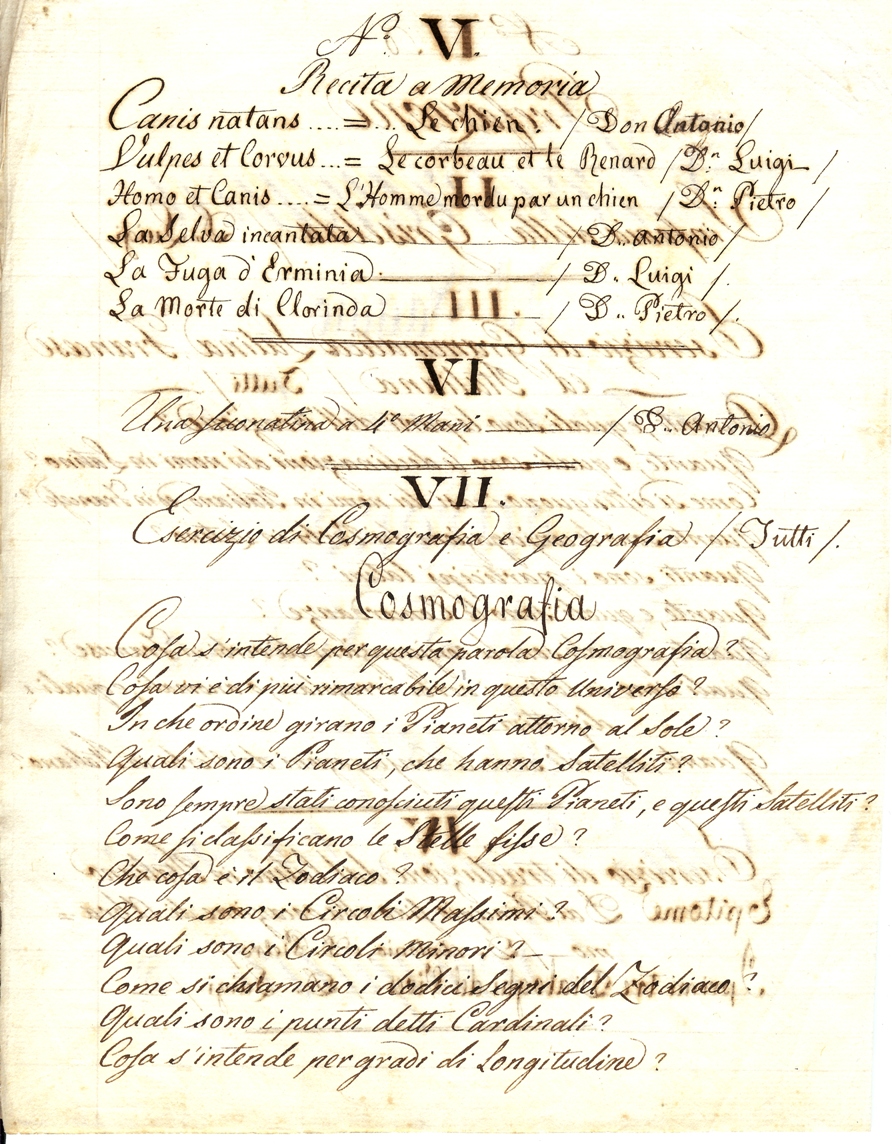 N.º VI.
Recita a Memoria
Canis natans .... = ... Le chien. / Don Antonio /
Vulpes et Corvus ... = Le corbeau et le Renard / D.n Luigi /
Homo et Canis .... = L'Homme mordu par un chien / D.n Pietro /
La Selva incantata / D.. Antonio /
La Fuga d'Erminia / D.. Luigi /.
La Morte di Clorinda / D.. Pietro /.
VI
Una Suonatina a 4º Mani / D.. Antonio
VII.
Esercizio di Cosmografia e Geografia / Tutti /.
Cosmografia
Coſa s'intende per questa parola Coſmografia?
Coſa vi è di più rimarcabile in questo Univerſo?
In che ordine girano i Pianeti attorno al Sole?
Quali sono i Pianeti, che hanno Satelliti?
Sono ſempre stati conoſciuti queſti Pianeti, e queſti Satelliti?
Come ſi claſsificano le Stelle fiſse?
Che coſa è il Zodiaco?
Quali sono i Circoli Maſsimi?
Quali sono i Circoli Minori?
Come si chiamano i dodici Segni del Zodiaco?
Quali sono i punti detti Cardinali?
Coſa s'intende per gradi di Longitudine?